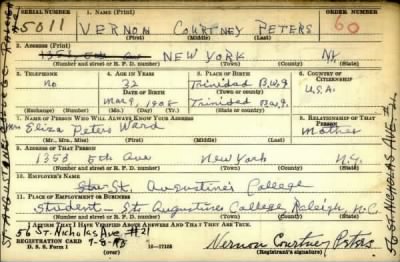 SERIAL NUMBER 1. NAME (Print) ORDER NUMBER
5011 VERNON COURTNEY PETERS 60
(First) (Middle) (Last)
2. ADDRESS (Print)
1353 5th Ave NEW YORK NY
(Number and street or R. F. D. number) (Town) (County) (State)
3. TELEPHONE 4. AGE IN YEARS 5. PLACE OF BIRTH 6. COUNTRY OF CITIZENSHIP
no 32 Trinidad B.W.I.
DATE OF BIRTH (Town or county) U.S.A.
Mar 9, 1908 Trinidad B.W.I.
(Exchange) (Number) (Mo.) (Day) (Yr.) (State or country)
7. NAME OF PERSON WHO WILL ALWAYS KNOW YOUR ADDRESS 8. RELATIONSHIP OF THAT PERSON
Mrs Eliza Peters Ward Mother
(Mr., Mrs., Miss) (First) (Middle) (Last)
9. ADDRESS OF THAT PERSON
1353 5th Ave New York N.Y.
(Number and street or R. F. D. number) (Town) (County) (State)
10. EMPLOYER'S NAME
St. Augustine's College
11. PLACE OF EMPLOYMENT OR BUSINESS
Student - St. Augustine College Raleigh, N.C.
(Number and street or R. F. D. number) (Town) (County) (State)
I AFFIRM THAT I HAVE VERIFIED ABOVE ANSWERS AND THAT THEY ARE TRUE.
56 St. Nicholas Ave #21
REGISTRATION CARD
D. S. S. Form 1 16—17105 (Registrant's signature)
Vernon Courtney Peters
ST AUGUSTINE COLLEGE RALEIGH
56 ST NICHOLAS AVE #21